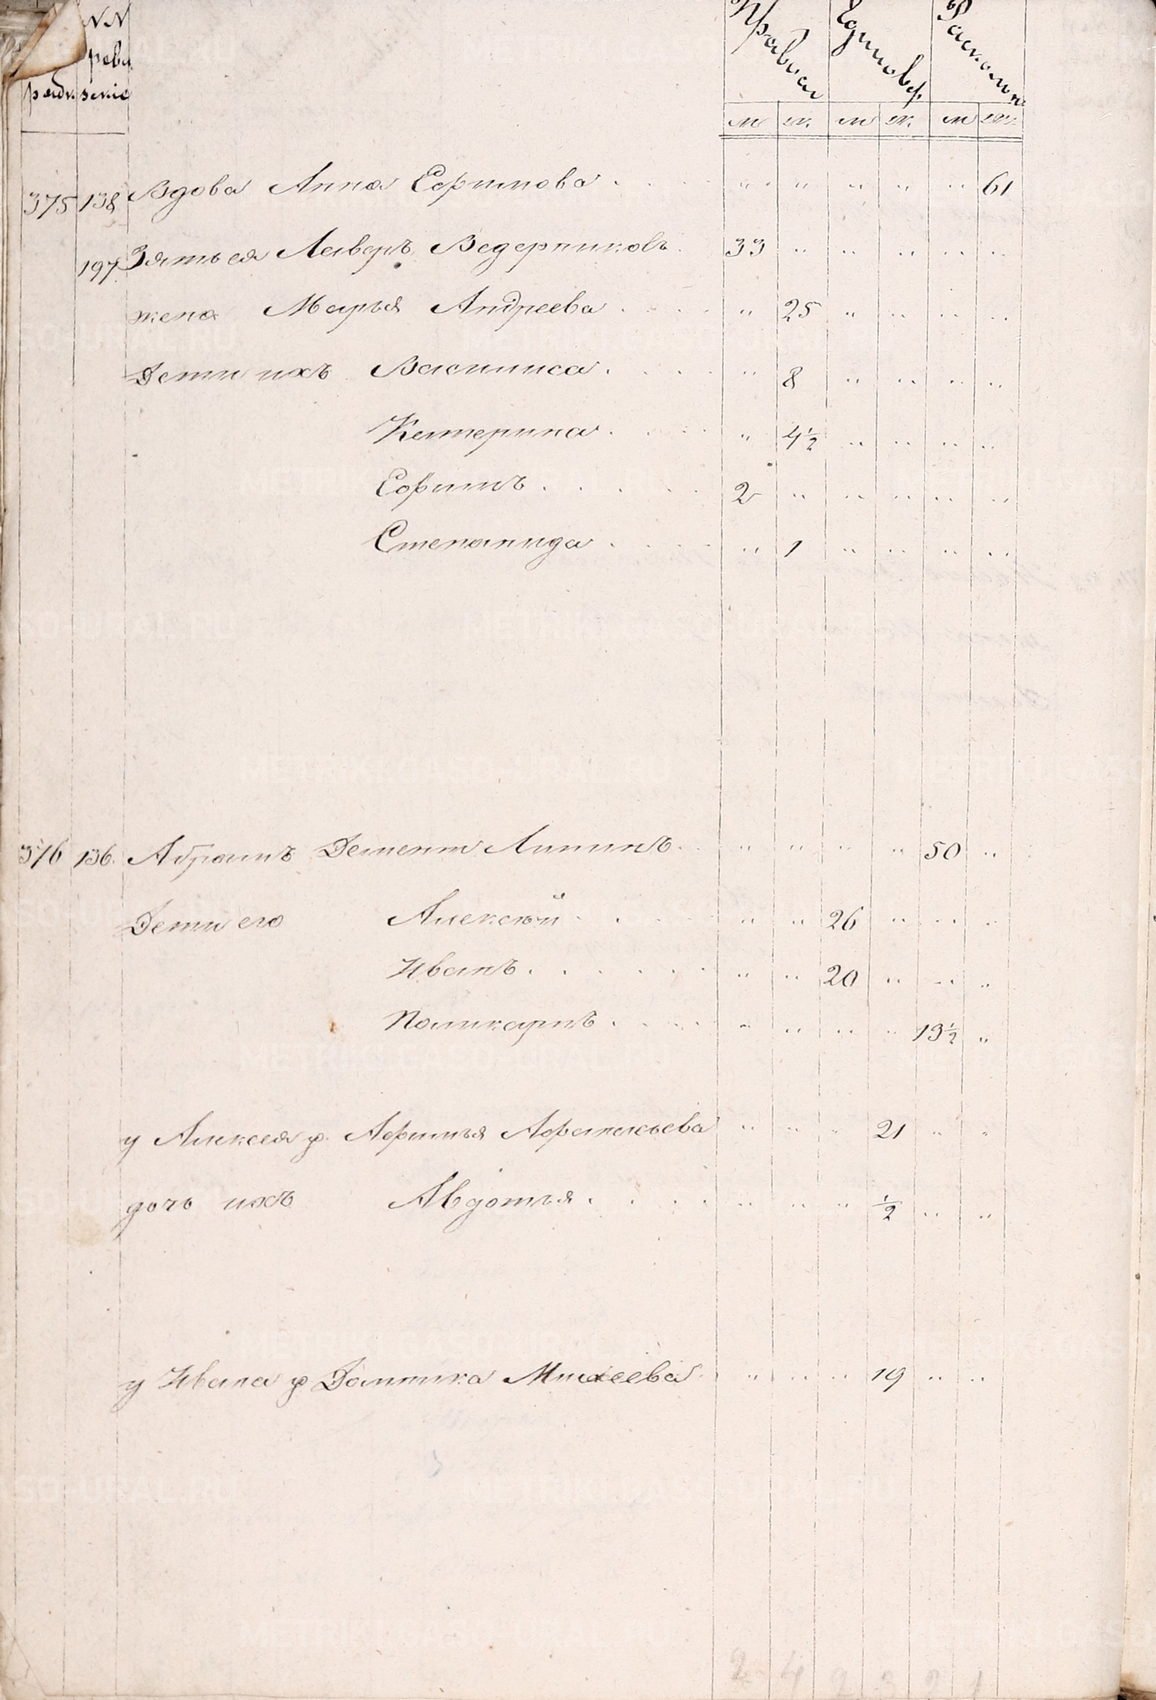 NN
реви
рядк. зские
Правосл Единовер. Раскольн
м ж. м ж. м ж.
375 138 Вдова Анна Ефимова . . . " " " " " 61
197 Зять ея Лаверъ Ведерниковъ. 33 " " " " "
жена Марья Андреева . . . " 25 " " " "
Дети ихъ Василиса . . . " 8 " " " "
Катерина . . . " 4½ " " " "
Ефимъ . . . . 2 " " " " "
Степанида . . . " 1 " " " "
376 136. Абрамъ Демент Липинъ . " " " " 50 "
Дети его Алексей . . . " " 26 " " "
Иванъ . . . . " " 20 " " "
Поликарпъ . . . " " " " 13½ "
у Алексея ж. Афимья Афанасьева " " " 21 " "
дочь ихъ Авдотья . . . " " " ½ " "
у Ивана ж Домника Михеева . " " " 19 " "
2 4 2 3 2 1